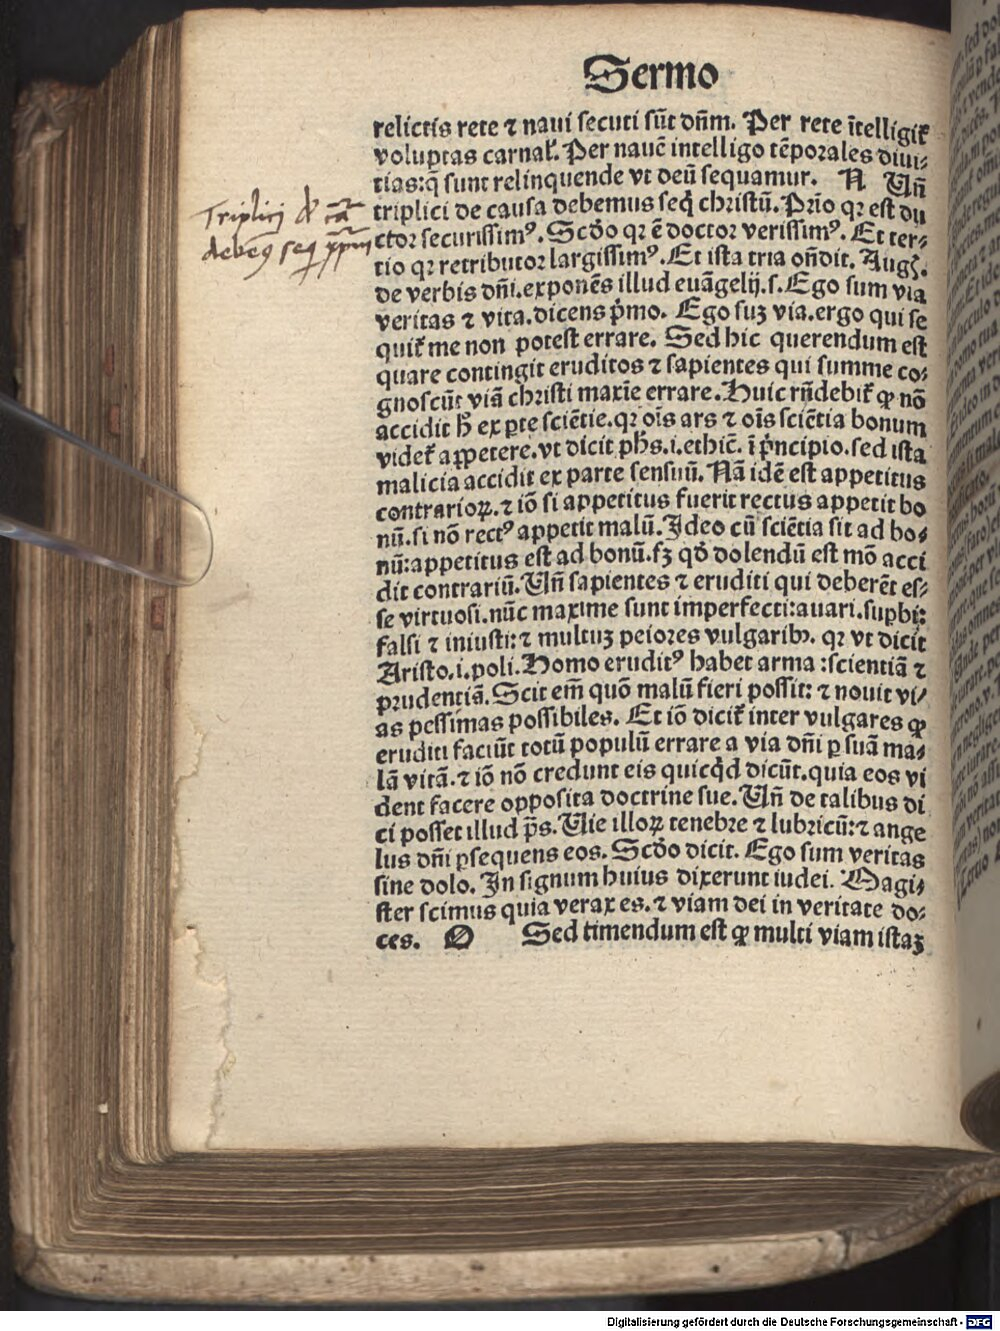 Sermo
relictis rete ⁊ naui secuti sūt dn̄m. Per rete ītelligit᷑
voluptas carnal᷑. Per nauē intelligo tēporales diui-
tias: q̄ sunt relinquende vt deū sequamur. N Un̄
triplici de causa debemus seq̇ christū. Prīo qꝛ est du
ctor securissimꝰ. Scd̄o qꝛ ē doctor verissimꝰ. Et ter-
tio qꝛ retributor largissimꝰ. Et ista tria on̄dit. Augꝰ.
de verbis dn̄i. exponēs illud euāgelij. s. Ego sum via
veritas ⁊ vita. dicens p̄mo. Ego suꝫ via. ergo qui se
quit᷑ me non potest errare. Sed hic querendum est
quare contingit eruditos ⁊ sapientes qui summe co-
gnoscūt viā christi maxīe errare. Huic rn̄debit᷑ ꝙ nō
accidit h̄ ex ꝑte sciētie. qꝛ oīs ars ⁊ oīs sciētia bonum
videt᷑ aꝑpetere. vt dicit ph̄s. i. ethic̄. ī p̄ncipio. sed ista
malicia accidit ex parte sensuū. Nā idē est appetitus
contrarioꝝ. ⁊ iō si appetitus fuerit rectus appetit bo
nū. si nō rectꝰ appetit malū. Ideo cū sciētia sit ad bo-
nū: appetitus est ad bonū. sꝫ qd̄ dolendū est mō acci
dit contrariū. Un̄ sapientes ⁊ eruditi qui deberēt es-
se virtuosi. nūc maxime sunt imperfecti: auari. suꝑbi:
falsi ⁊ iniusti: ⁊ multuꝫ peiores vulgaribꝰ. qꝛ vt dicit
Aristo. i. poli. Homo eruditꝰ habet arma : scientiā ⁊
prudentiā. Scit em̄ quō malū fieri possit: ⁊ nouit vi-
as pessimas possibiles. Et iō dicit᷑ inter vulgares ꝙ
eruditi faciūt totū populū errare a via dn̄i ꝑ suā ma-
lā vitā. ⁊ iō nō credunt eis quicq̇d dicūt. quia eos vi
dent facere opposita doctrine sue. Un̄ de talibus di
ci posset illud p̄s. Uie illoꝝ tenebre ⁊ lubricū: ⁊ ange
lus dn̄i ꝑsequens eos. Scd̄o dicit. Ego sum veritas
sine dolo. In signum huius dixerunt iudei. Magi-
ster scimus quia verax es. ⁊ viam dei in veritate do-
ces. O Sed timendum est ꝙ multi viam istaꝫ
Triplici d̄ cā
debemꝰ seq xp̄m
Digitalisierung gefördert durch die Deutsche Forschungsgemeinschaft - DFG